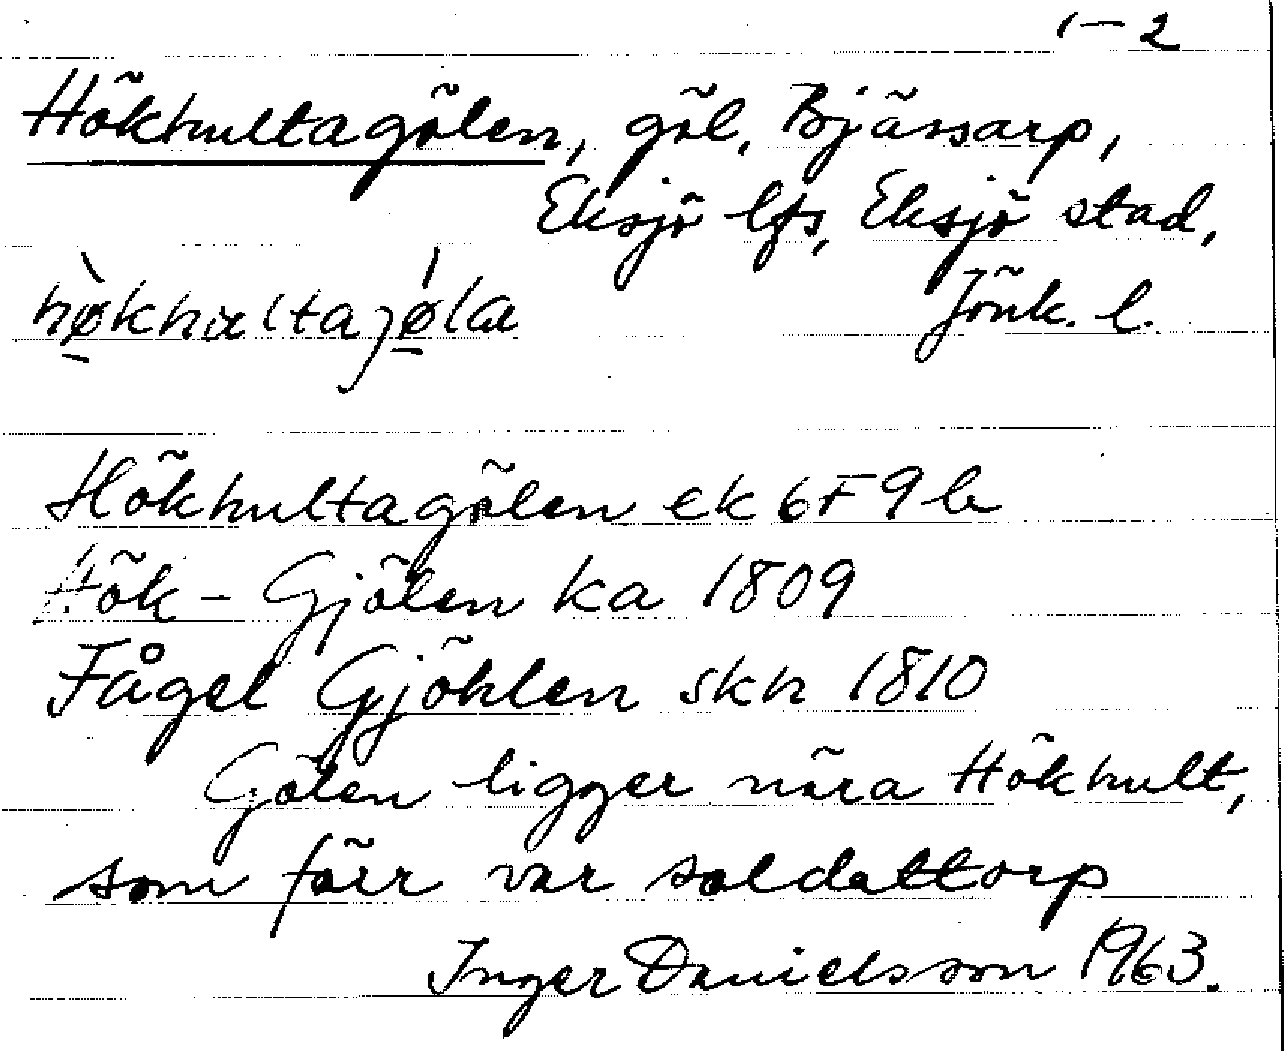 1-2
Hökhultagölen, göl, Bjässarp,
Eksjö lfs, Eksjö stad,
hø̀khultajǿla Jönk. l.
Hökhultagölen ek 6F9b
Hök-Gjölen ka 1809
Fågel Gjöhlen skh 1810
Gölen ligger nära Hökhult,
som förr var soldattorp
Inger Danielsson 1963.